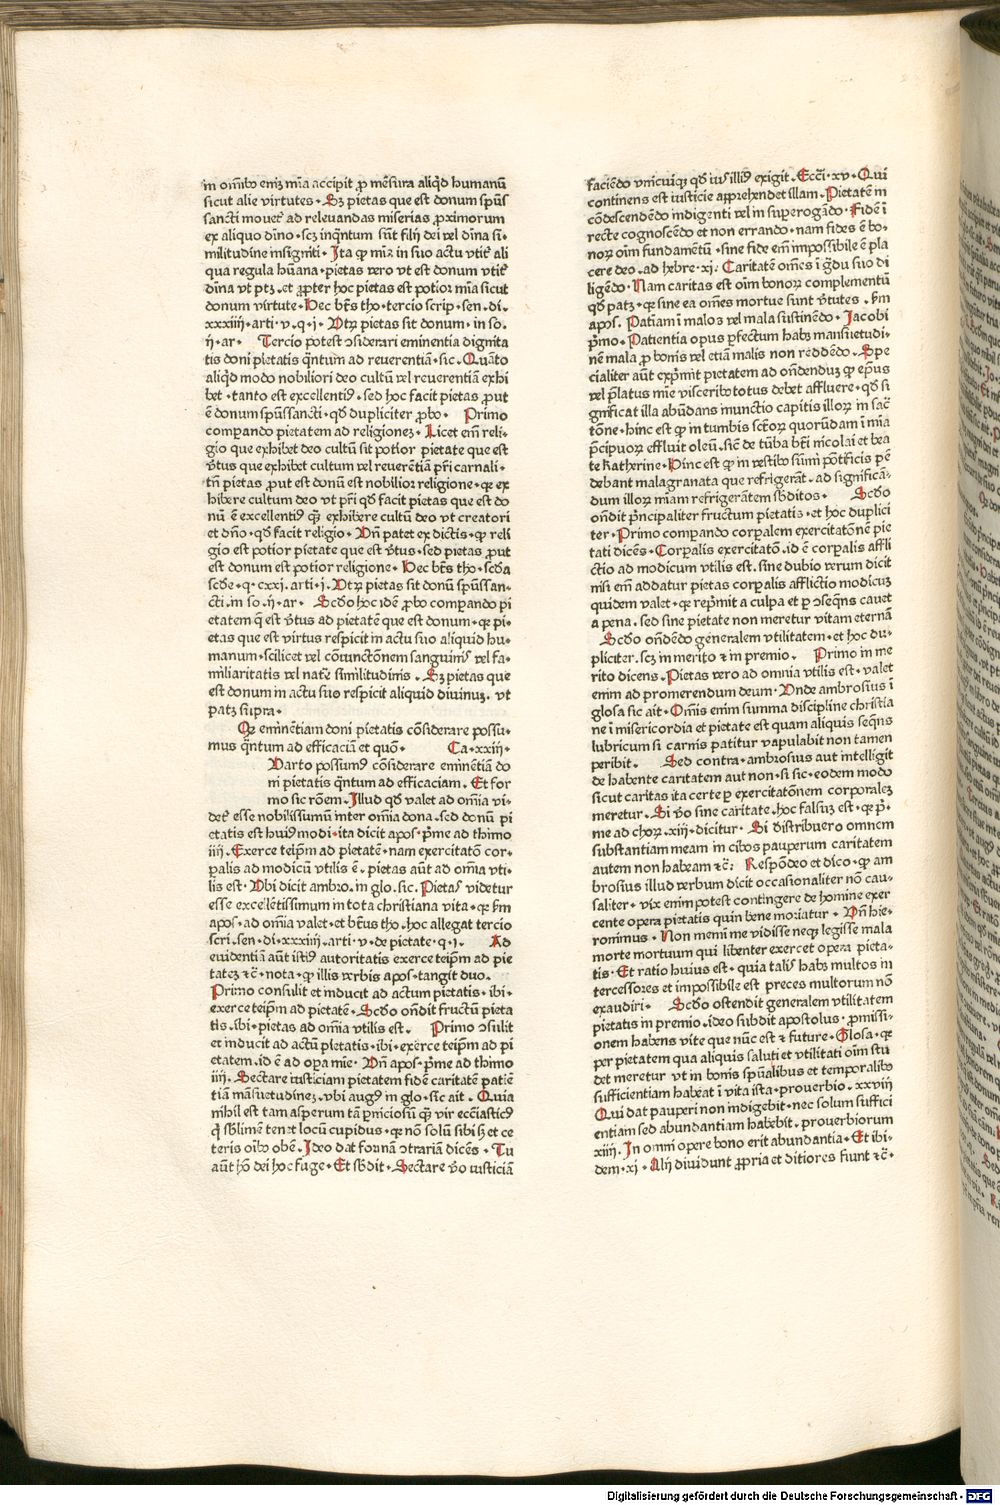 in omībꝰ enī mīa accipit ꝓ mēsura aliqd humanū
sicut alie virtutes . Sꝫ pietas que est donum spūs
sancti mouet ad releuandas miserias ꝓximorum
ex aliquo dīno . scꝫ inqntum sūt filij dei vel dīna si-
militudine insigniti . Ita ꝙ mīa in suo actu vtit ali
qua regula hūana . pietas vero vt est donum vtit
dīna vt ptꝫ . et ꝓpter hoc pietas est potior mīa sicut
donum virtute . Hec bt̄s tho . tercio scrip . sen . di .
xxxiiij . arti . v . q . i . Vtꝝ pietas sit donum . in so .
ij . ar . Tercio potest ↄsiderari eminentia dignita
tis doni pietatis qntum ad reuerentiā . sic . Quāto
aliqd modo nobiliori deo cultū vel reuerentiā exhi
bet . tanto est excellentiꝰ . sed hoc facit pietas ꝓut
ē donum spūssancti . qd dupliciter ꝓbo . Primo
comparando pietatem ad religionē . Licet em reli-
gio que exhibet deo cultū sit potior pietate que est
v̄tus que exhibet cultum vel reuerētiā pri carnali .
tn̄ pietas ꝓut est donū est nobilior religione . ꝙ ex
hibere cultum deo vt pri qd facit pietas que est do
nū ē excellentiꝰ qꝫ exhibere cultū deo vt creatori
et dn̄o . qd facit religio . Vn̄ patet ex dictis . ꝙ reli
gio est potior pietate que est v̄tus . sed pietas ꝓut
est donum est potior religione . Hec bt̄s tho . scd̄a
scd̄e . q . cxxi . arti . i . Vtꝝ pietas sit donū spūssan-
cti . in so . ij . ar . Scdo hoc idē ꝓbo comparando pi
etatem q̄ est v̄tus ad pietatē que est donum . ꝙ pi-
etas que est virtus respicit in actu suo aliquid hu-
manum . scilicet vel coniunctōnem sanguinis vel fa-
miliaritatis vel nate similitudinis . Sꝫ pietas que
est donum in actu suo respicit aliquid diuinū . vt
patꝫ supra .
Qꝙ eminētiam doni pietatis cōsiderare possu-
mus qntum ad efficaciā et quō . Ca . xxiij .
Varto possumꝰ cōsiderare eminētiā do
ni pietatis qntum ad efficaciam . Et for
mo sic rōem . Illud qd valet ad omīa vi-
det esse nobilissimū inter omīa dona . sed donū pi
etatis est huiꝰmodi . ita dicit apos . pme ad thimo
iiij . Exerce teipm ad pietatē . nam exercitatō cor-
palis ad modicū vtilis ē . pietas aūt ad omīa vti-
lis est . Vbi dicit ambro . in glo . sic . Pietas videtur
esse excellentissimum in tota christiana vita . ꝙ km̄
apos . ad omīa valet . et bt̄us tho . hoc allegat tercio
scri . sen . di . xxxiiij . arti . v . de pietate . q . i . Ad
euidentiā aūt istiꝰ autoritatis exerce teipm ad pie
tatē ⁊ c̄ . nota . ꝙ illis verbis apos . tangit duo .
Primo consulit et inducit ad actum pietatis . ibi .
exerce teipm ad pietatē . Scdo on̄dit fructū pieta
tis . ibi . pietas ad omīa vtilis est . Primo ↄsulit
et inducit ad actū pietatis . ibi . exerce teipm ad pi
etatem . id ē ad opa mīe . Vn̄ apos . pme ad thimo
iiij . Sectare iusticiam pietatem fidē caritatē patiē
tiā māsuetudinē . vbi augꝰ in glo . sic ait . Quia
nihil est tam asperum tā pniciosū qꝫ vir ecc̄iasticꝰ
q̄ sblimē tenet locū cupidus . ꝙ nō solū sibi sꝫ et ce
teris oībꝰ obē . Ideo dat formā ↄtrariā dicēs . Tu
aūt hō dei hoc fuge . Et sbdit . Sectare v̄o iusticiā
faciēdo vnicuiqꝫ qd iuris illiꝰ exigit . Ecci . xv . Qui
continens est iusticie apprehendet illam . Pietatē in
cōdescendēdo indigenti vel in suꝑerogādo . Fidē i
recte cognoscēdo et non errando . nam fides ē bo-
noꝝ oīm fundamētū . sine fide em̄ impossibile ē pla
cere deo . ad hebre . xi . Caritatē omēs i gdu suo di
ligēdo . Nam caritas est oīm bonoꝝ complementū
qd patꝫ . ꝙ sine ea omēs mortue sunt v̄tutes . km̄
apos . Patiam i maloꝝ vel mala sustinēdo . Jacobi
pmo . Patientia opus ꝑfectum habꝫ mansuetudi-
nē mala ꝓ bonis vel etiā malis non reddēdo . Spe
cialiter aūt exprimit pietatem ad on̄dendū ꝙ ep̄us
vel p̄latus mīe visceribꝰ totus debet affluere . qd si
gnificat illa abūdans inunctio capitis illoꝝ in sac̄
tōne . hinc est ꝙ in tumbis sctoꝝ quorūdam i mīa
pcipuoꝝ effluit oleū . sic de tūba bt̄i nicolai et bea
te Katherine . Hinc est ꝙ in vestibꝰ sūmi pōtificis pē
debant malagranata que refrigerāt . ad significā-
dum illoꝝ mīam refrigerātem sbditos . Scdo
on̄dit pncipaliter fructum pietatis . et hoc duplici
ter . Primo comparando corꝑalem exercitatōnē pie
tati dicēs . Corꝑalis exercitatō . id ē corꝑalis affli
ctio ad modicum vtilis est . sine dubio verum dicit
nisi em̄ addatur pietas corꝑalis afflictio modicū
quidem valet . ꝙ repmit a culpa et ꝑ ↄseqns cauet
a pena . sed sine pietate non meretur vitam eternā
Scdo on̄dēdo generalem vtilitatem . et hoc du-
pliciter . scꝫ in merito ⁊ in premio . Primo in me
rito dicens . Pietas vero ad omnia vtilis est . valet
enim ad promerendum deum . Vnde ambrosius i
glosa sic ait . Om̄is enim summa discipline christia
ne i misericordia et pietate est quam aliquis seqns
lubricum si carnis patitur vapulabit non tamen
peribit . Sed contra . ambrosius aut intelligit
de habente caritatem aut non . si sic . eodem modo
sicut caritas ita certe ꝑ exercitatōnem corporalē
meretur . Si v̄o sine caritate . hoc falsū est . ꝙ p̄ .
me ad choꝝ . xiij . dicitur . Si distribuero omnem
substantiam meam in cibos pauperum caritatem
autem non habeam ⁊ c̄ : Respōdeo et dico . ꝙ am
brosius illud verbum dicit occasionaliter nō cau-
saliter . vix enim potest contingere de homine exer
cente opera pietatis quin bene moriatur . Vn̄ hie-
ronimus . Non memi me vidisse neqꝫ legisse mala
morte mortuum qui libenter exercet opera pieta-
tis . Et ratio huius est . quia talis habꝫ multos in
tercessores et impossibile est preces multorum nō
exaudiri . Scdo ostendit generalem vtilitatem
pietatis in premio . ideo subdit apostolus . ꝓmissi-
onem habens vite que nūc est ⁊ future . Glosa . ꝙ
per pietatem qua aliquis saluti et vtilitati oīm stu
det meretur vt in bonis spūalibus et temporalibꝰ
sufficientiam habeat i vita ista . prouerbio . xxviij
Qui dat pauperi non indigebit . nec solum suffici
entiam sed abundantiam habebit . prouerbiorum
xiij . In omni opere bono erit abundantia . Et ibi-
dem . xi . Alij diuidunt ꝓpria et ditiores fiunt ⁊ c̄ .
Digitalisierung gefördert durch die Deutsche Forschungsgemeinschaft - DFG